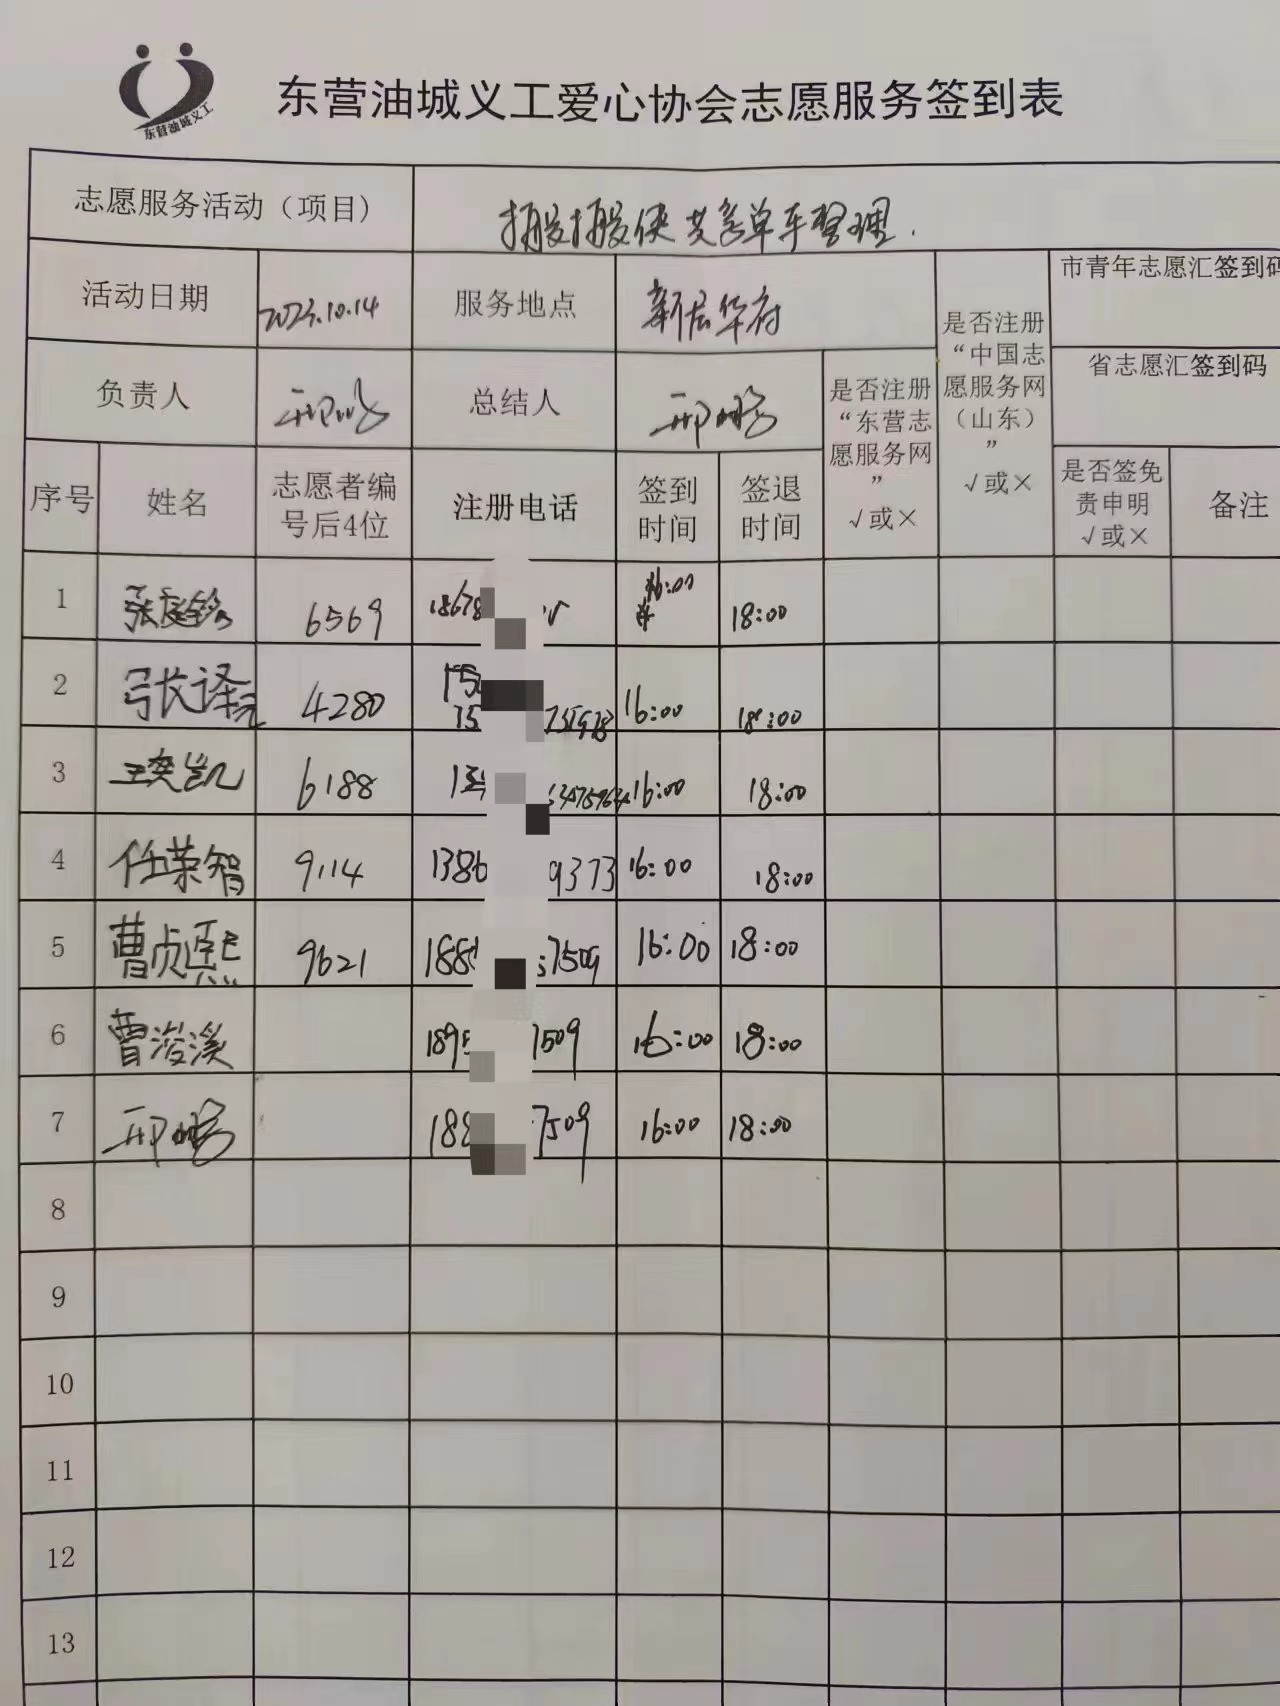 东营油城义工
东营油城义工爱心协会志愿服务签到表
志愿服务活动（项目）
搬搬侠共享单车整理.
活动日期
2023.10.14
服务地点
新居华府
是否注册
“中国志
愿服务网
（山东）
”
√或×
市青年志愿汇签到码
省志愿汇签到码
负责人
邢鹏
总结人
邢鹏
是否注册
“东营志
愿服务网
”
√或×
序号
姓名
志愿者编
号后4位
注册电话
签到
时间
签退
时间
是否签免
责申明
√或×
备注
1 张庭铭 6569 18678 16:00 18:00
2 张译元 4280 150 15 16:00 18:00
3 王奕凯 6188 16:00 18:00
4 任荣智 9114 1386 9373 16:00 18:00
5 曹贞熙 9621 188 7509 16:00 18:00
6 曹浚溪 1895 7509 16:00 18:00
7 邢鹏 188 7509 16:00 18:00
8
9
10
11
12
13